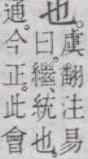 也虞翻注易
通今曰繼統也
正此會